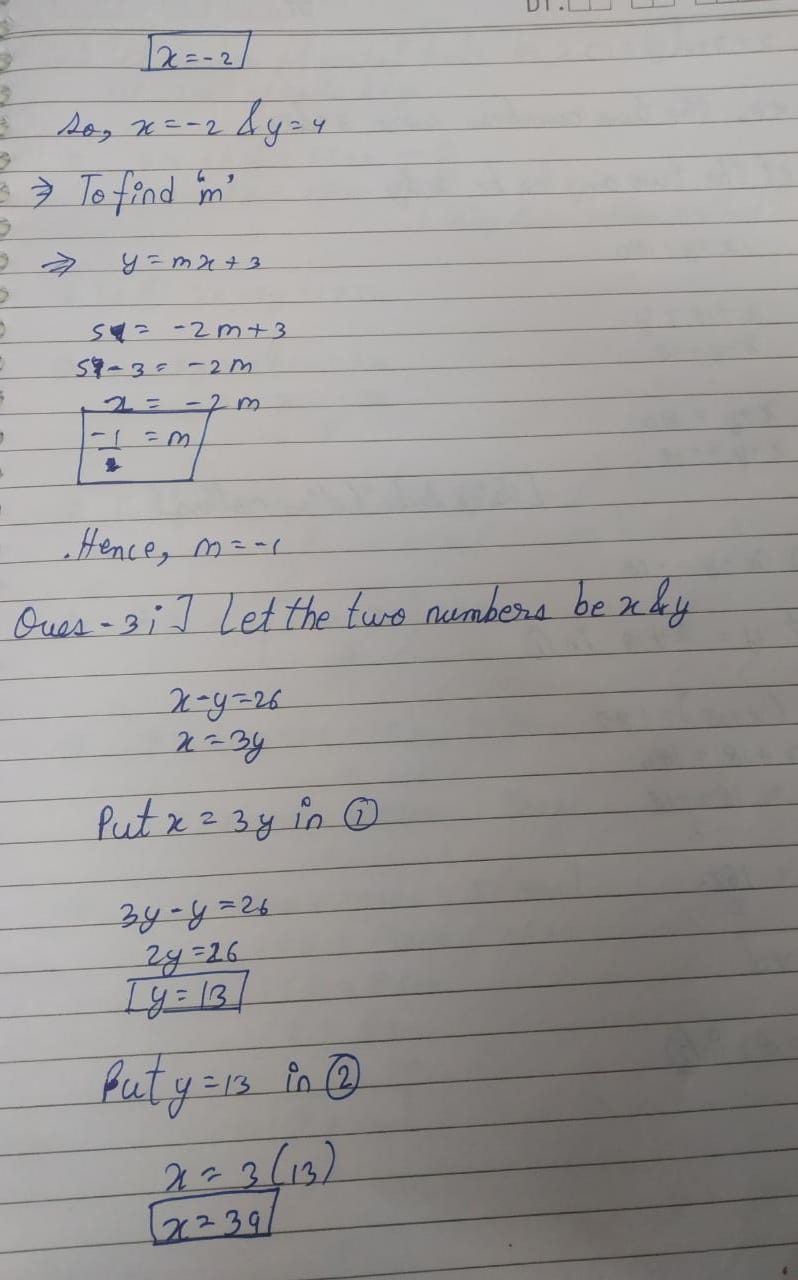 DT.
x = -2
So, x = -2 & y = 4
⇒ To find 'm'
⇒ y = mx + 3
5 = -2m + 3
5 - 3 = -2m
2 = -2m
-1 = m
Hence, m = -1
Ques - 3 i] Let the two numbers be x & y
x - y = 26
x = 3y
Put x = 3y in ①
3y - y = 26
2y = 26
y = 13
Put y = 13 in ②
x = 3(13)
x = 39